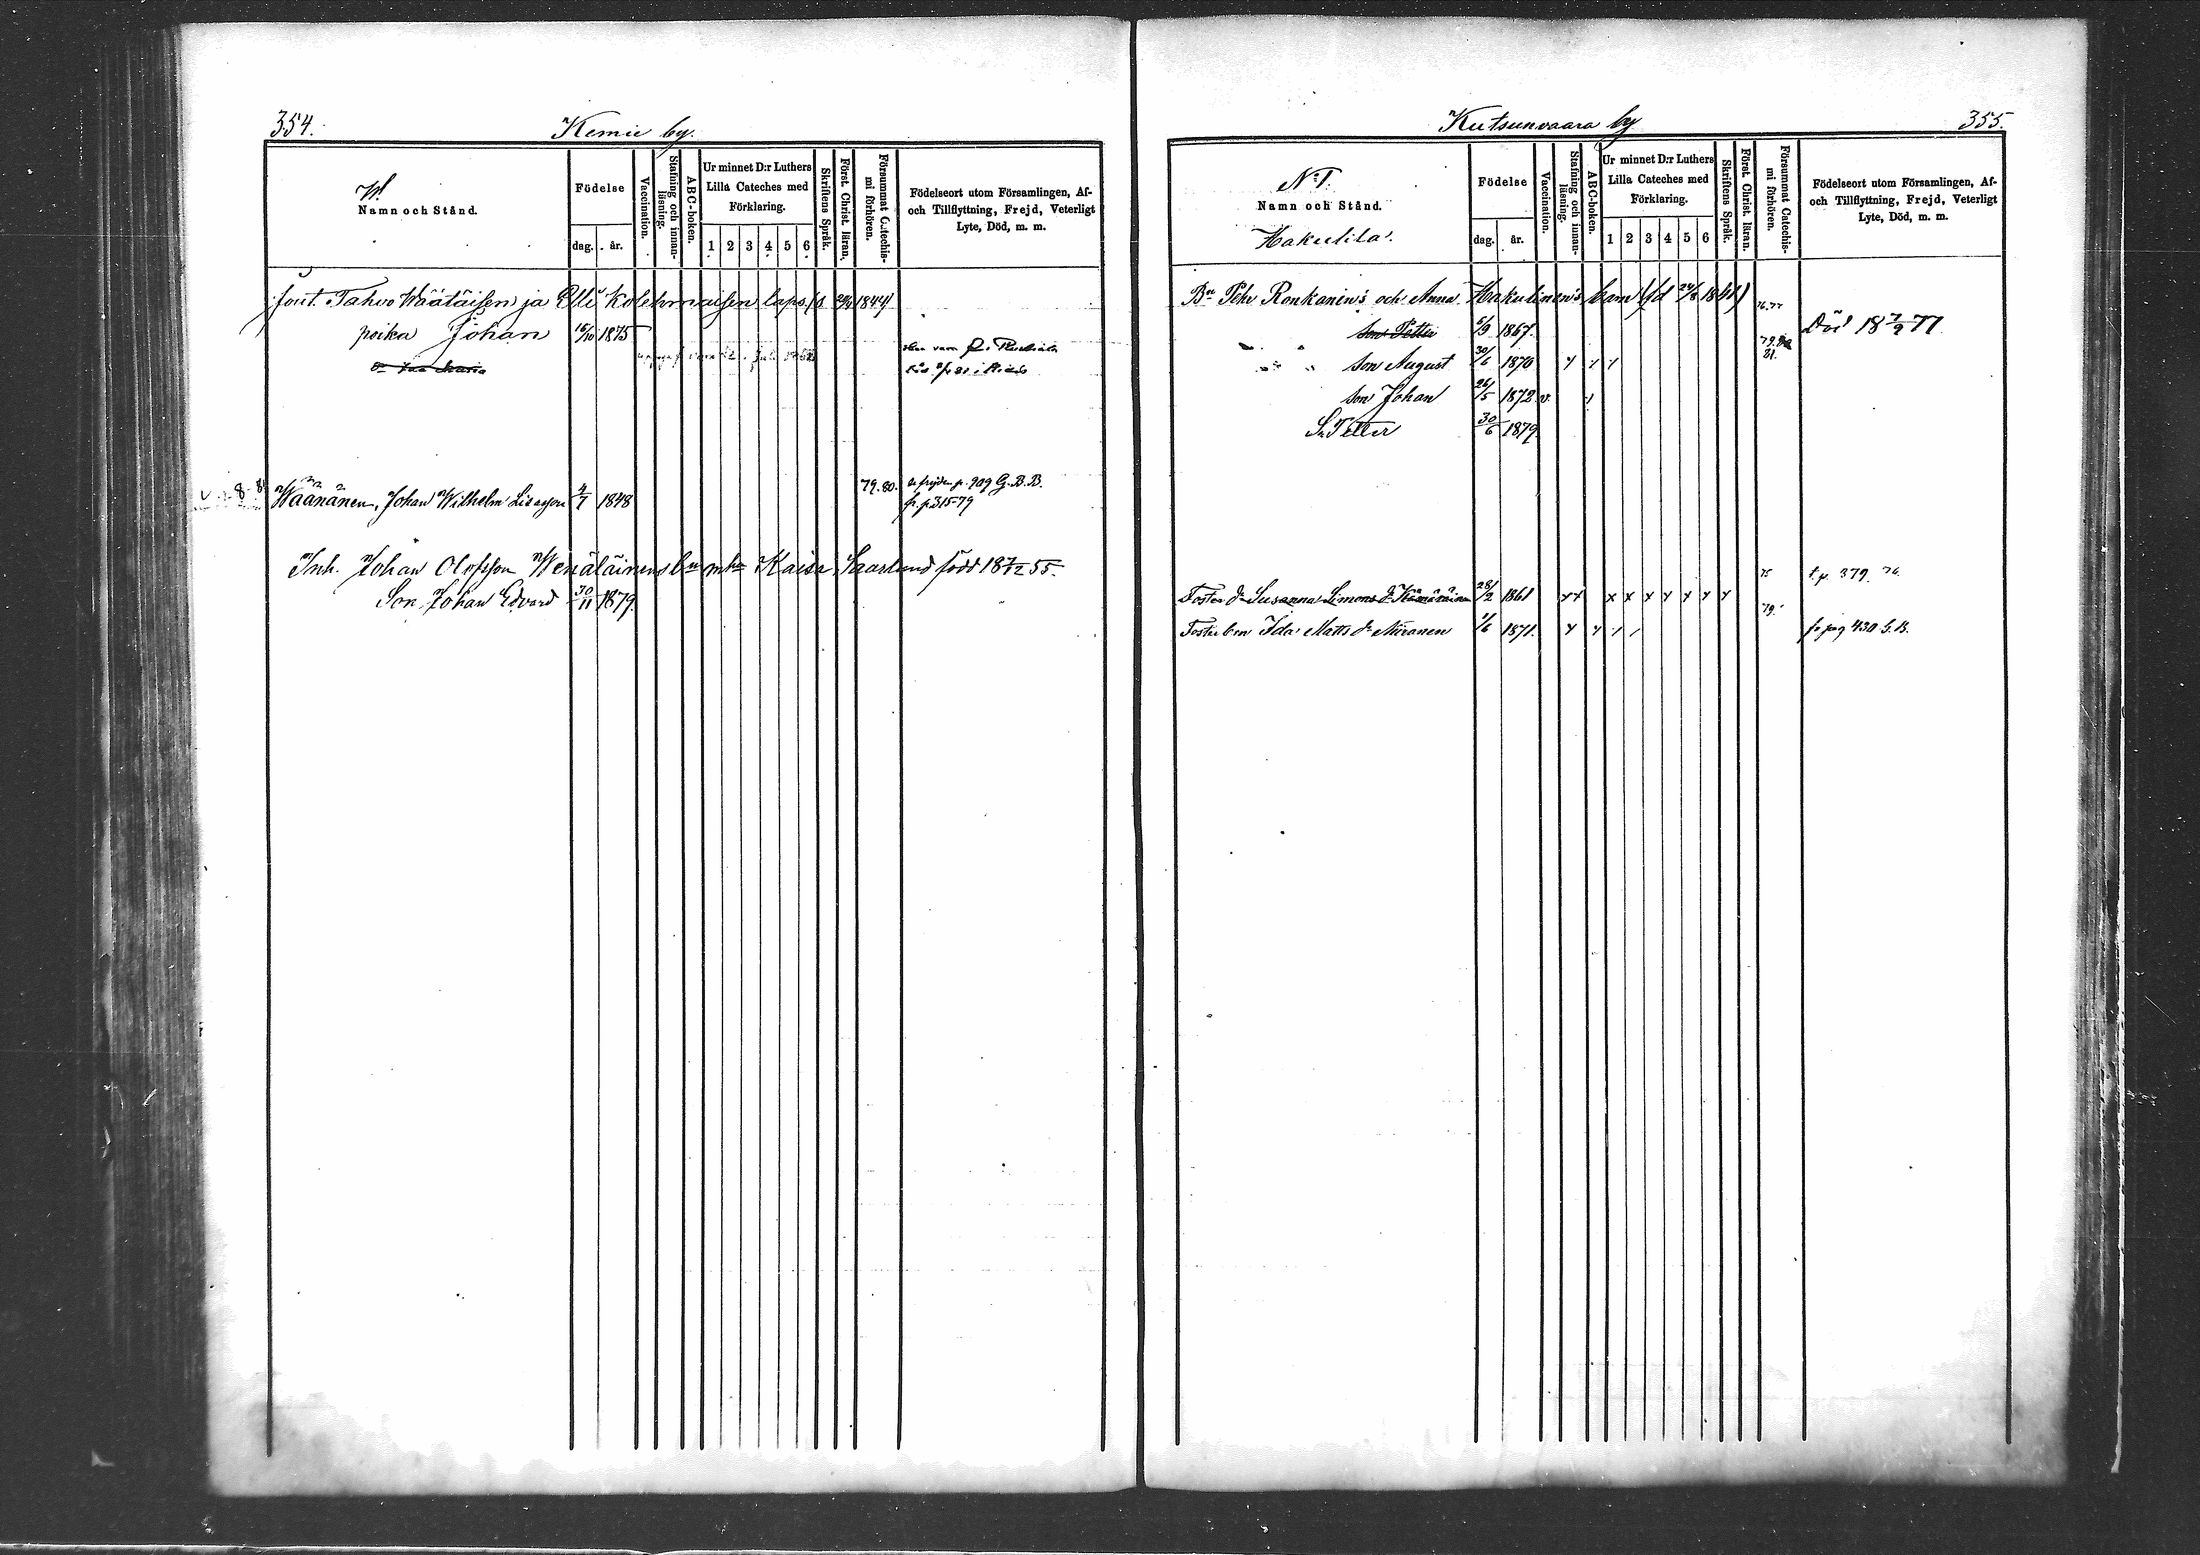 354.
Kemie by.
W.
Namn och Stånd.
Födelse
dag. år.
Vaccination.
Stafning och innan-läsning.
ABC-boken.
Ur minnet D:r Luthers
Lilla Cateches med
Förklaring.
1 2 3 4 5 6
Skriftens Språk.
Först. Christ. läran.
Försummat Catechis-mi förhören.
Födelseort utom Församlingen, Af-
och Tillflyttning, Frejd, Veterligt
Lyte, Död, m. m.
Tahvo Wäätäisen ja Elli Kolehmaisen laps. 1844
poika Johan 16/10 1875
Wäänänen, Johan Wilhelm 4/7 1848 79.80. p. 909 G.B.B.
fr. p. 315-79
Inh. Johan Olofsson Wenäläinens Kaisa född 18 55.
Son Johan Edvard 30/11 1879.
Kutsunvaara by
355.
N:1.
Namn och Stånd.
Hakulila.
Födelse
dag. år.
Vaccination.
Stafning och innan-läsning.
ABC-boken.
Ur minnet D:r Luthers
Lilla Cateches med
Förklaring.
1 2 3 4 5 6
Skriftens Språk.
Först. Christ. läran.
Försummat Catechis-mi förhören.
Födelseort utom Församlingen, Af-
och Tillflyttning, Frejd, Veterligt
Lyte, Död, m. m.
Bn Pehr Ronkanen's och Anna Hakulinen's barn 76.77
son Petter 6/9 1867. Död 18 7/9 77.
son August 30/6 1870 81.
son Johan 26/5 1872 v.
S. Petter 30/6 1879
Foster dr Susanna Simons dr 28/2 1861 x x x x x x x x x 75 t. p. 379. 76.
Foster bn Ida Matts dr 1/6 1871. 79. fr pag 430 G.B.